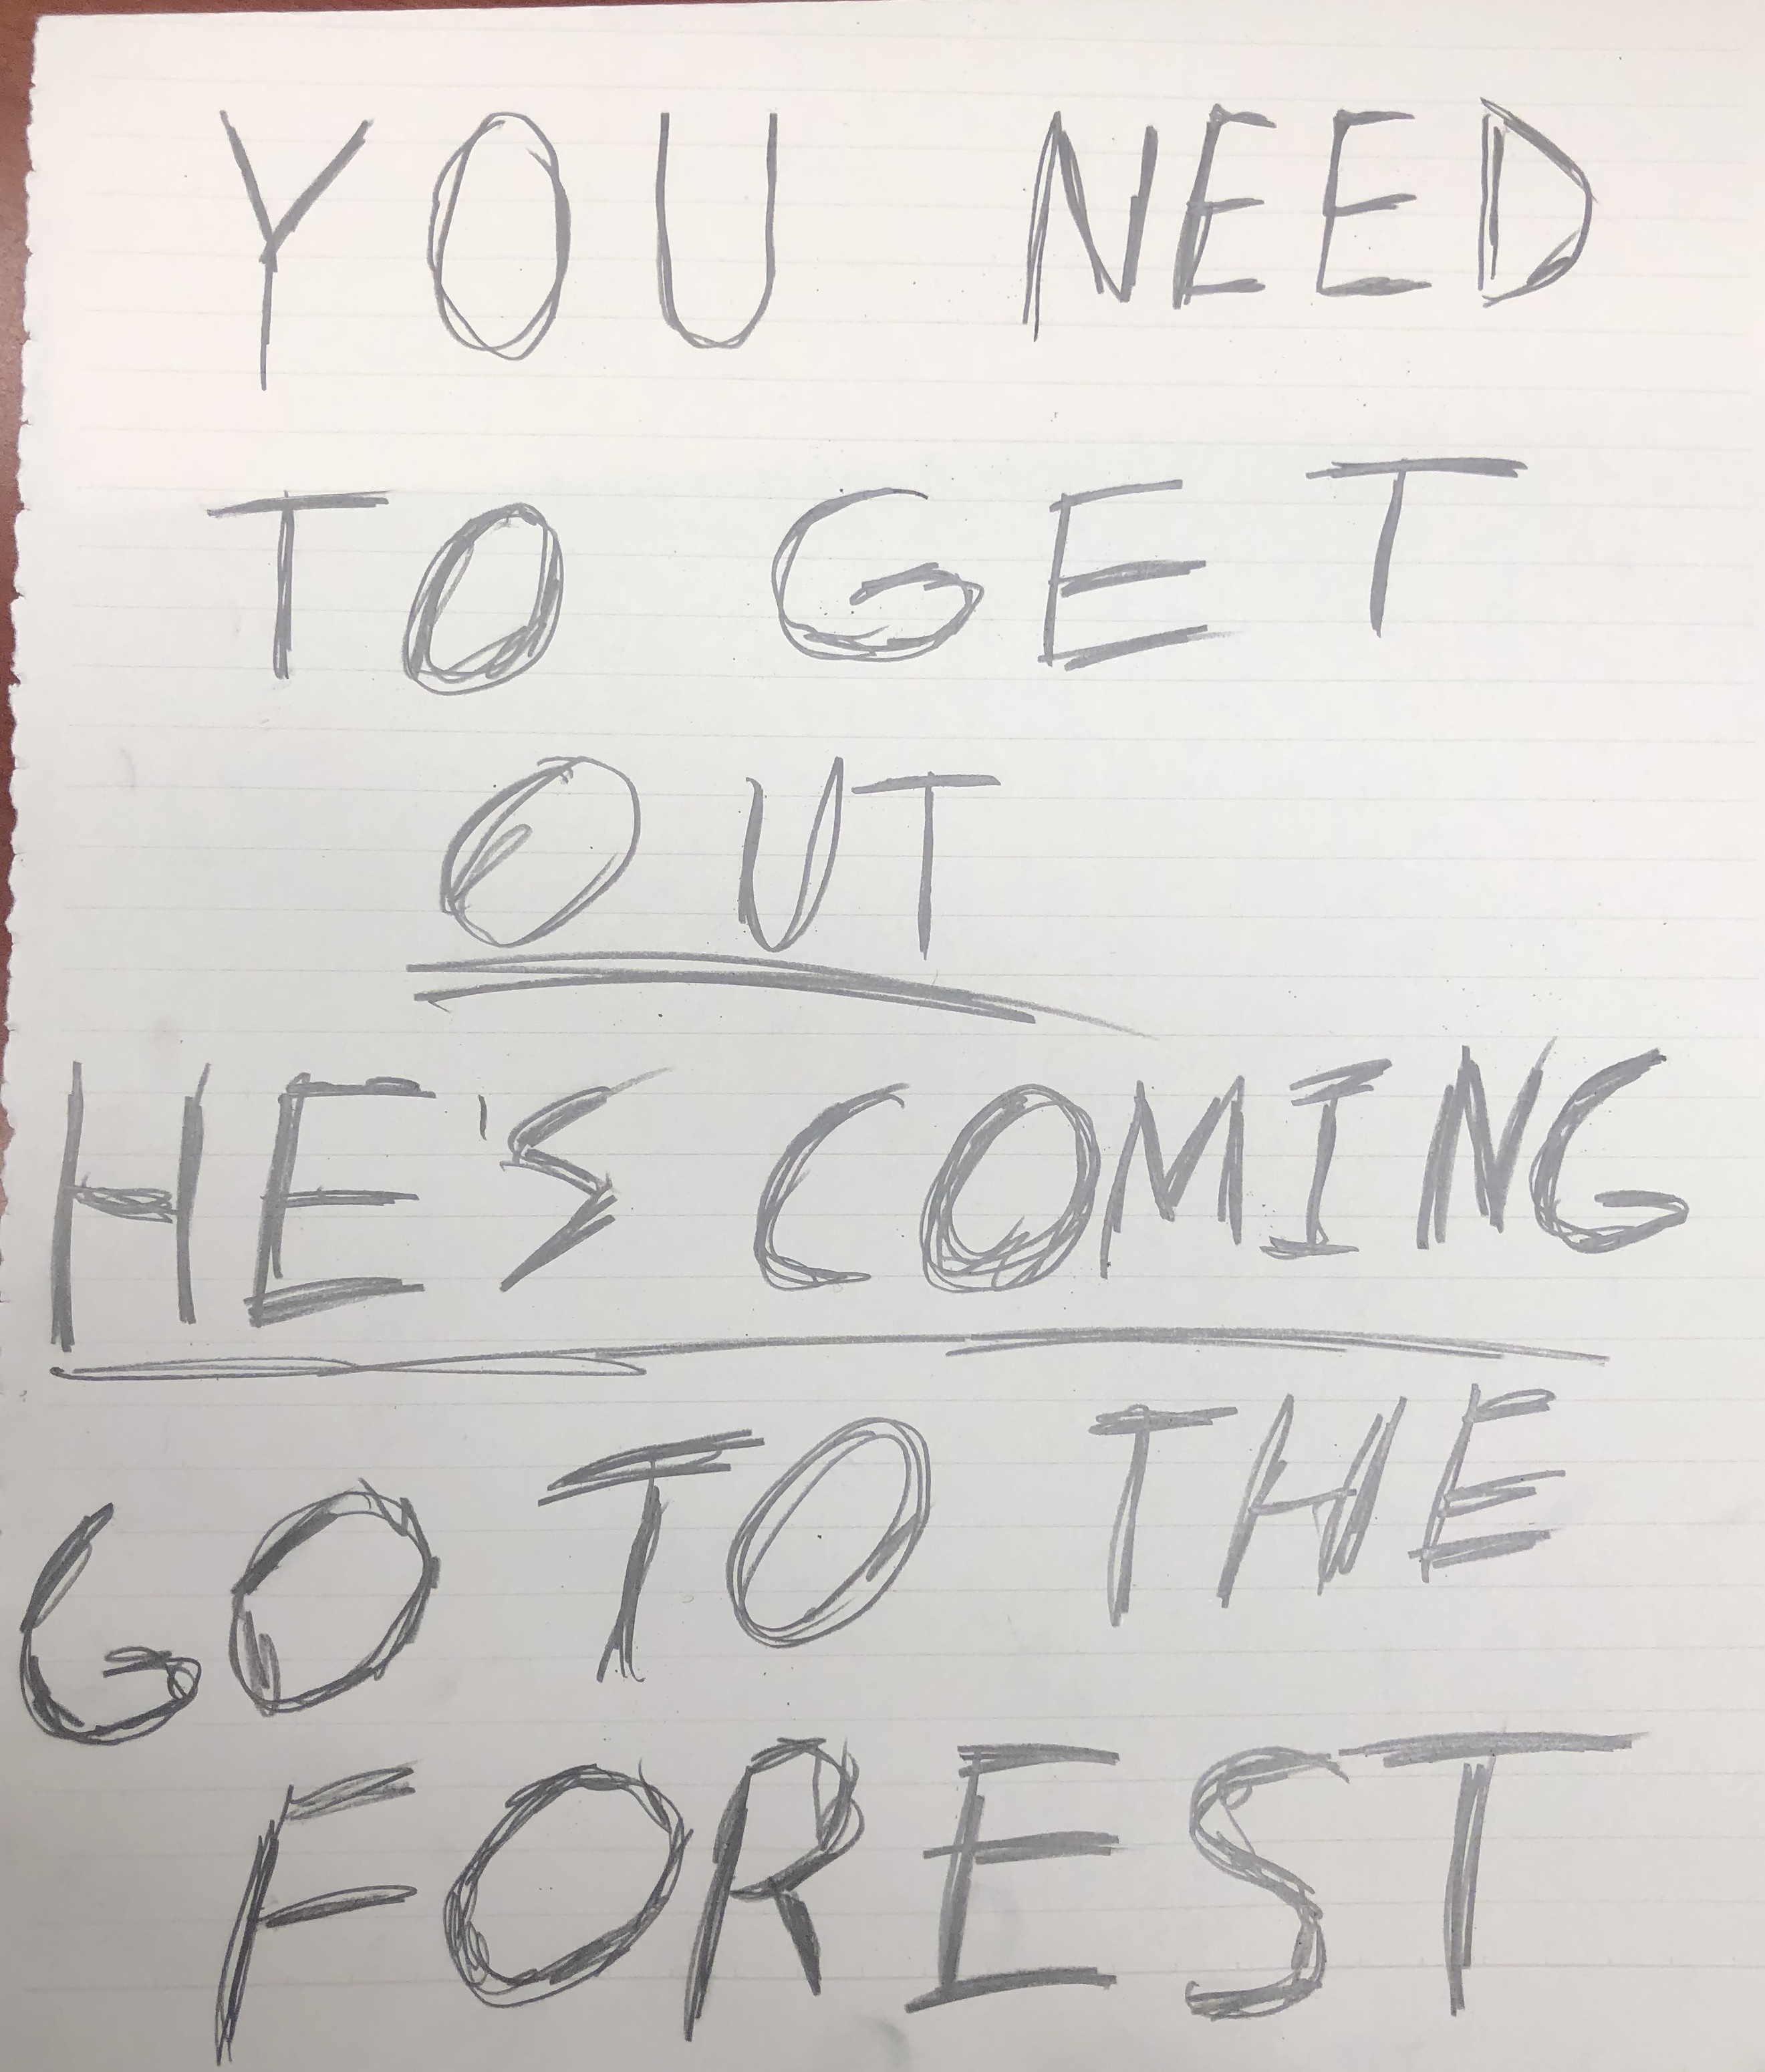 YOU NEED
TO GET
OUT
HE'S COMING
GO TO THE
FOREST